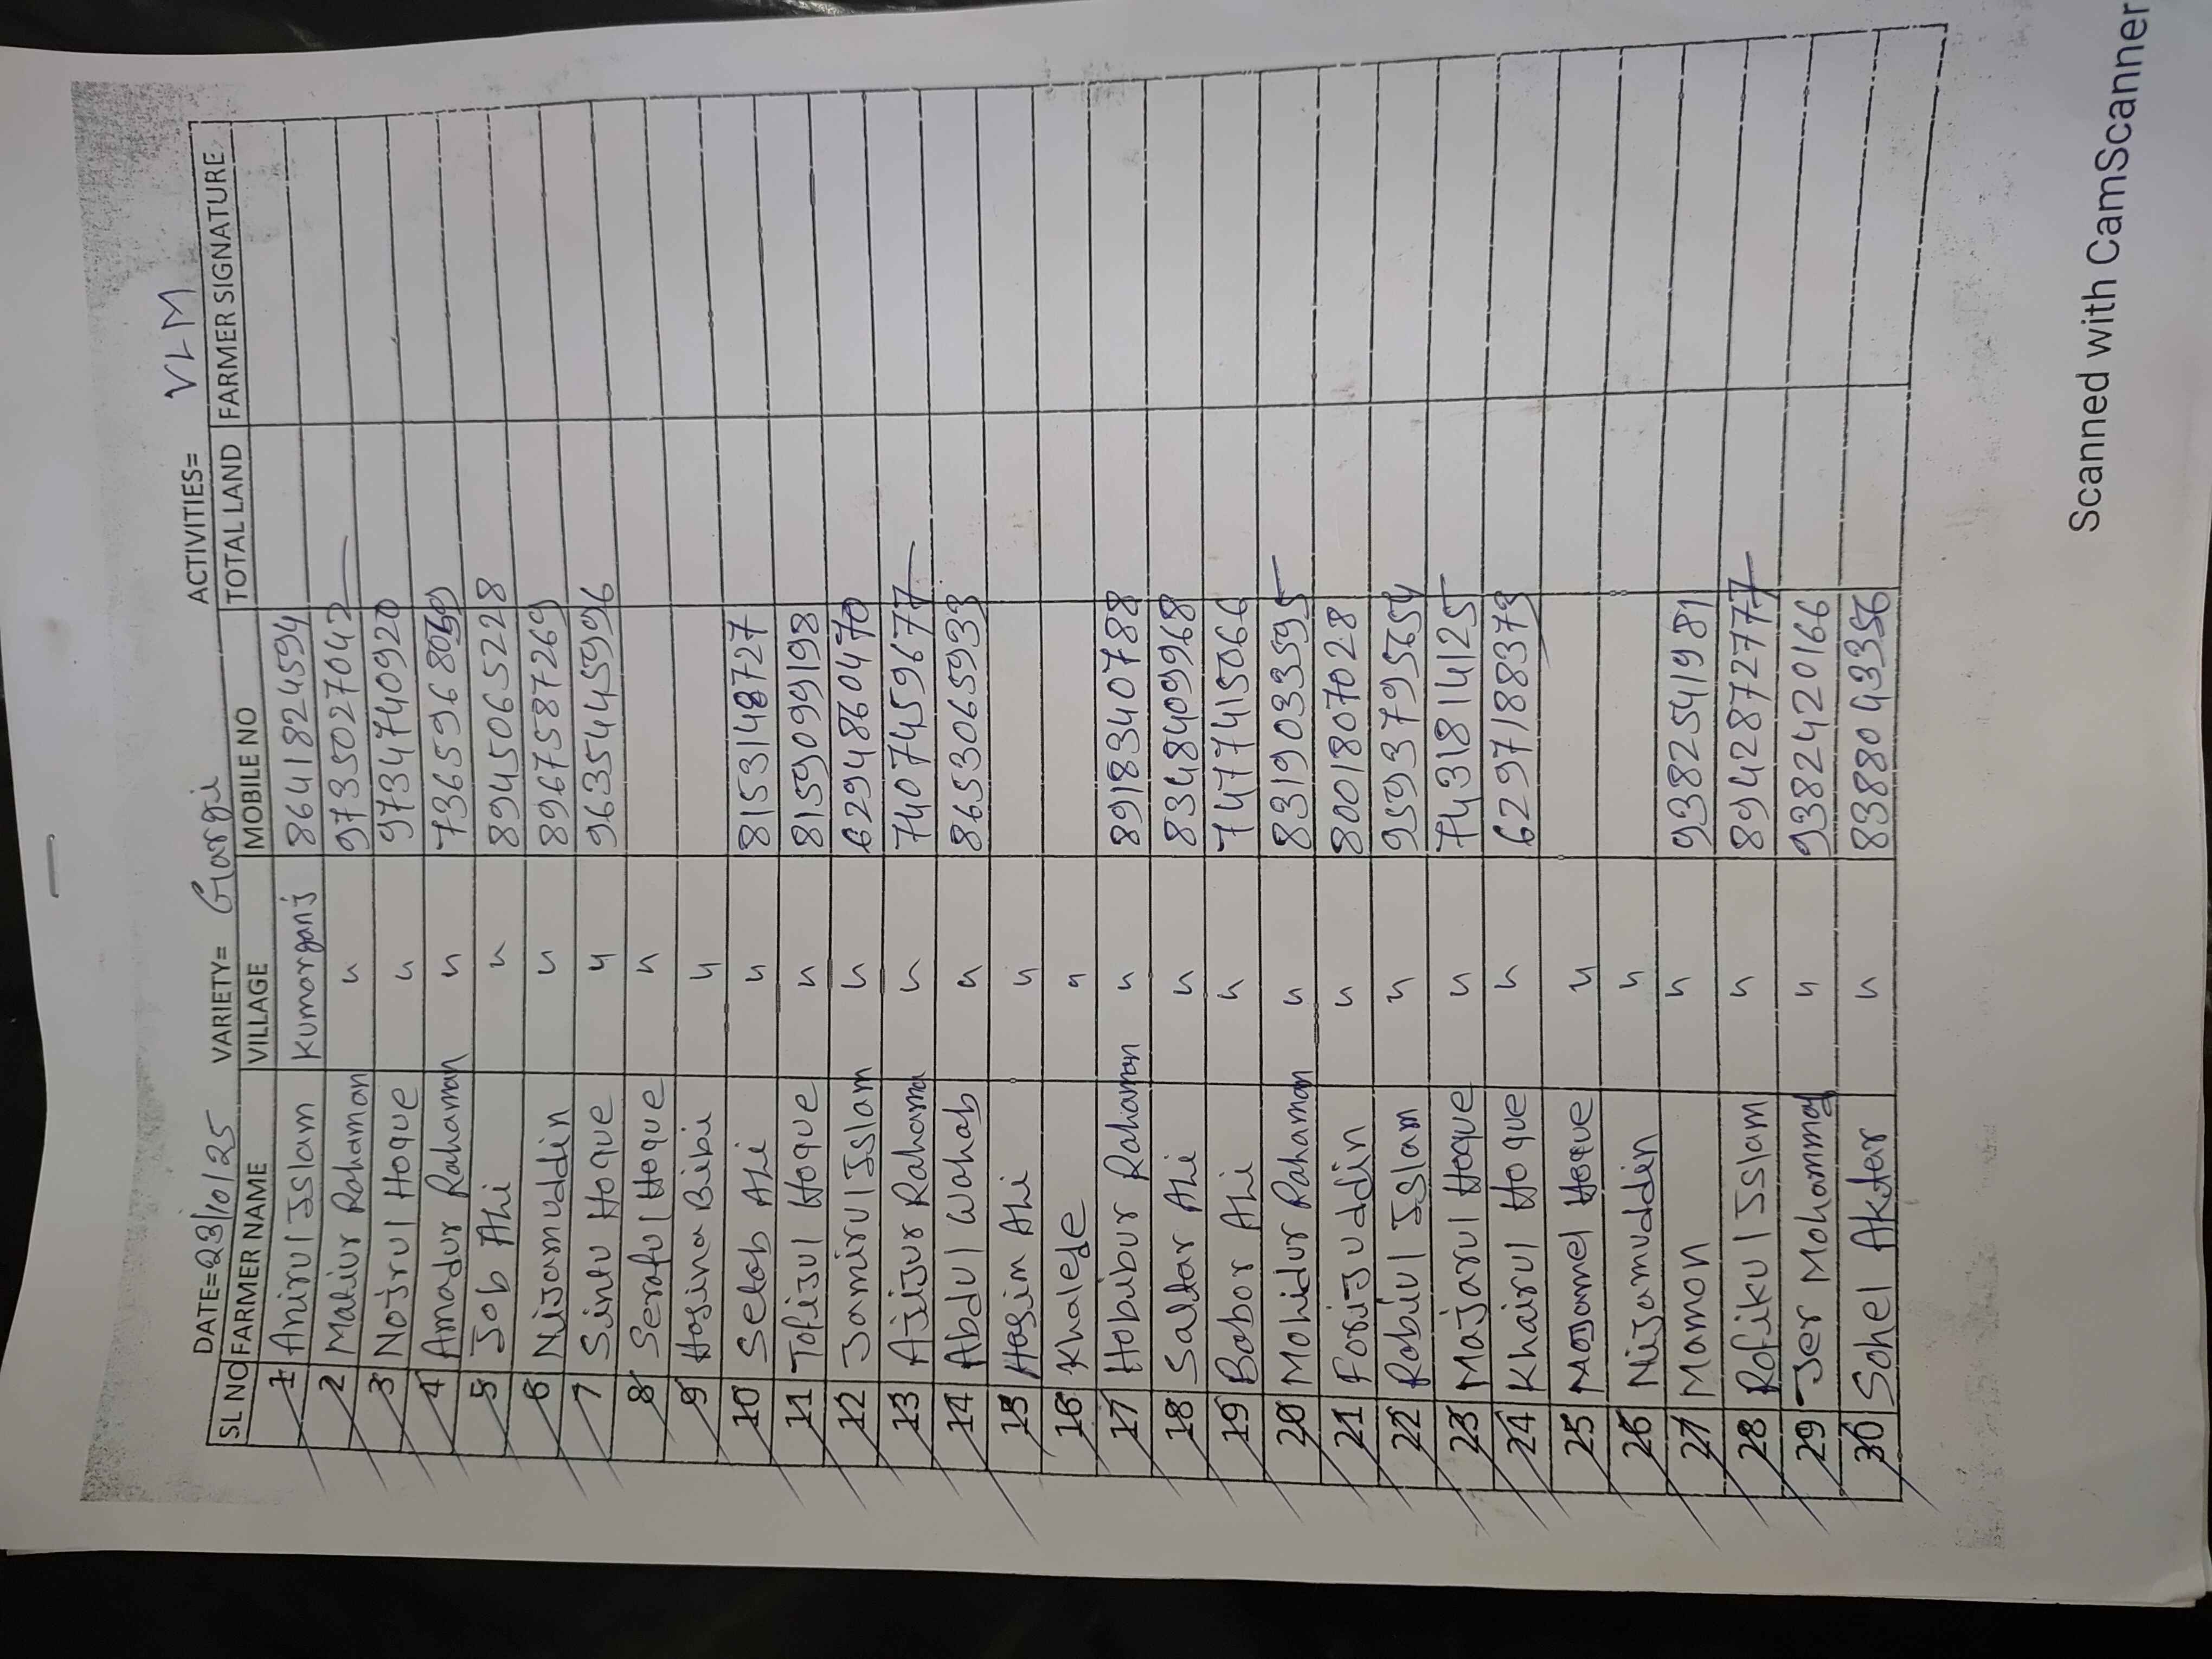 DATE=23/10/25 VARIETY= Gargi ACTIVITIES= VLM
SL NO FARMER NAME VILLAGE MOBILE NO TOTAL LAND FARMER SIGNATURE
1 Amirul Islam Kumarganj 8641824594
2 Matiur Rahaman " 9735027042
3 Nojrul Hoque " 9734740920
4 Amadur Rahaman "
5 Job Ali " 8945065228
6 Nijamuddin " 8967587269
7 Sintu Hoque " 9635445996
8 Seraful Hoque "
9 Hosina Bibi "
10 Setab Ali " 8153148727
11 Tofijul Hoque " 8159099198
12 Jamirul Islam " 6294860470
13 Ajijur Rahama " 7407459677
14 Abdul Wahab " 8653065933
15 Hasim Ali "
16 Khalede "
17 Hobibur Rahaman " 8918340788
18 Saltar Ali " 8348409968
19 Babor Ali " 7477415066
20 Mohidur Rahaman " 8319033595
21 Forijuddin " 8001807028
22 Robiul Islam " 9593795654
23 Majarul Hoque " 7431814125
24 Khairul Hoque " 6297188373
25 Mojamel Hoque "
26 Nijamuddin "
27 Mamon " 9382541981
28 Rofikul Islam " 8942872777
29 Jer Mohammad " 9382420166
30 Sohel Aktar " 8388043356
Scanned with CamScanner